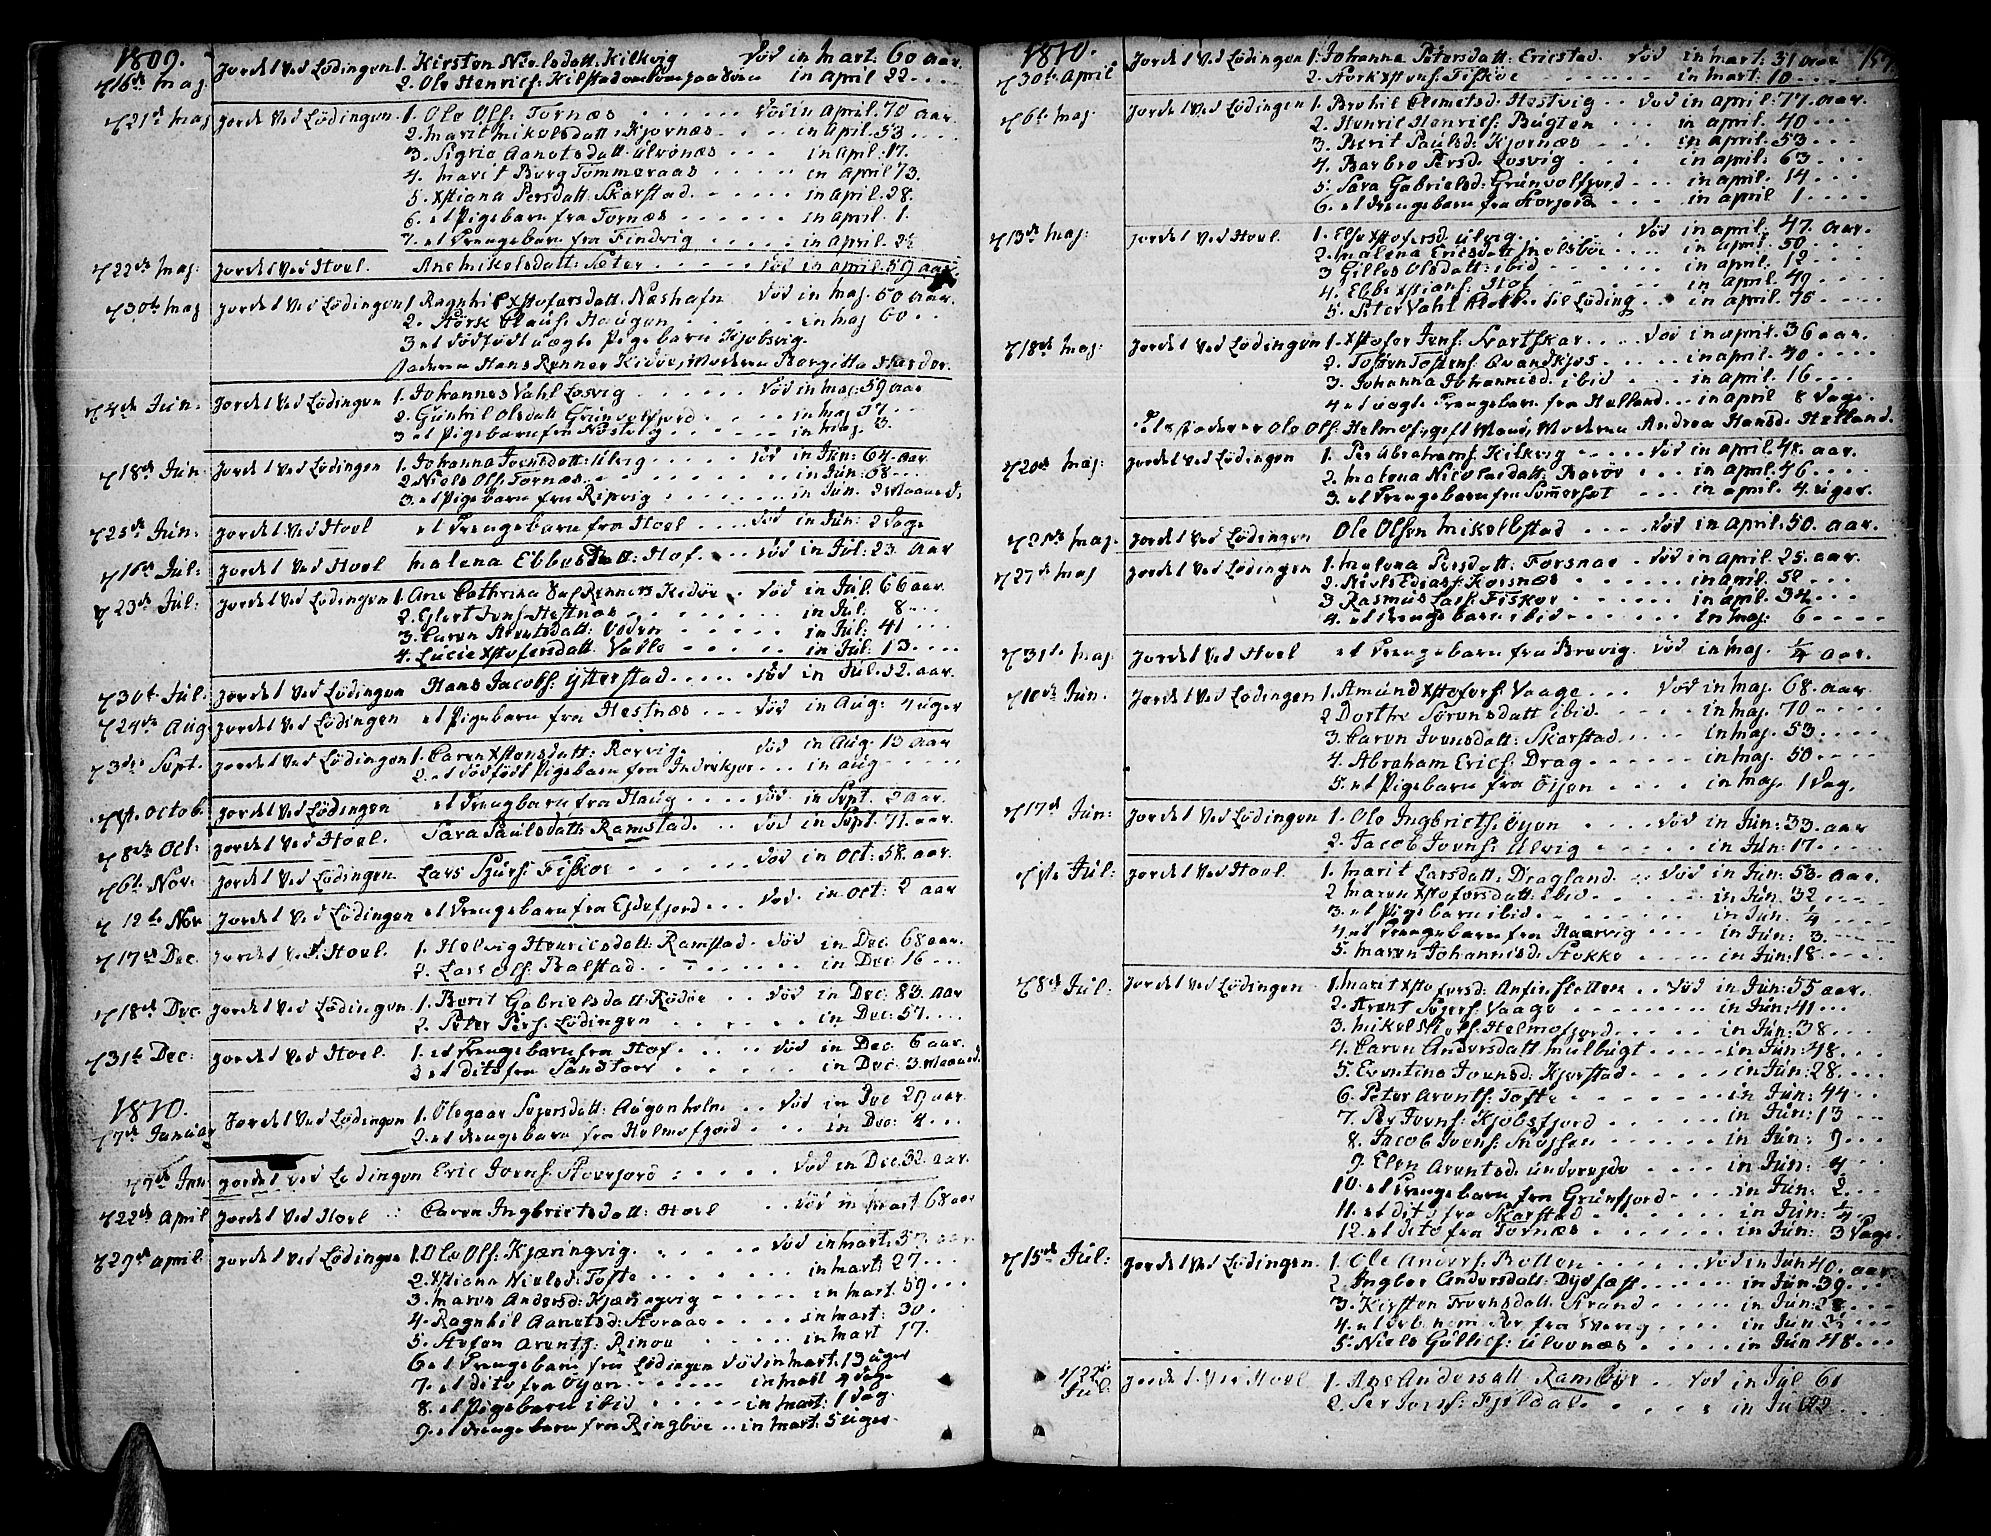 1809.
d 16de Maj Jordet ved Lödingen 1. Kirsten Nielsdatt: Kilkvig död in Mart: 60 aar.
2. Ole Henrics: Kilstad in April 22
d 21de Maj Jordet ved Lödingen 1. Ole Ols: Tornæs död in April. 70 aar
2. Marit Mikelsdatt: Kjornæs in April. 53
3. Sigrid Aanetsdatt: Ulvönæs in April: 17.
4. Marit Borg Tömmeraas in April 73.
5. Xstiana Persdatt: Skarstad in April. 28.
6. et Pigebarn fra Tornæs in April. 1.
7. et Drengebarn fra Findvig in April.
d 22de Maj: Jordet ved Hoel. Ane Mikelsdatt: Sæter död in April 59 aar
d 30te Maj Jordet ved Lödingen 1 Ragnhil Xstofersdatt. Næshafn död in Maj. 50 aar.
2. Störk Claus: Haugen in Maj 60
3 et dödfödt uægte Pigebarn Kjobsvig.
Faderen Hans Renner Kidöe, Moderen Borgitta Harder.
d 4de Jun. Jordet ved Lödingen 1. Johannes Vahl Losvig död in Maj. 59 aar
2. Gunhil Olsdatt: Grunvolfjord in Maj 37
3 et Pigebarn fra Nostvig in Maj. 3.
d 18de Jun: Jordet ved Lödingen 1. Johanna Joensdatt: Ulvig död in Jun: 64. aar
2 Niels Ols: Tornæs in Jun: 68
3. et Pigebarn fra Ripvig in Jun. 3 Maaned.
d 25de Jun: Jordet ved Hoel et Drengebarn fra Hoel död in Jun: 2 Dage
d 16de Jul: Jordet ved Hoel Malena Ebbesdatt: Hof död in Jul: 23 aar
d 23de Jul: Jordet ved Lödingen 1 Ane Cathrina Renners Kidöe död in Jul. 66 aar.
2. Glert Jens: Hestnæs in Jul. 8
3. Caren Arentsdatt: Voden in Jul: 41
4. Lucie Xstofersdatt. Valle in Jul: 13
d 30te Jul. Jordet ved Lödingen Hans Jacobs: Ytterstad död in Jul. 12. aar.
d 24de Aug Jordet ved Lödingen et Pigebarn fra Hestnæs död in Aug: 4 uger
d 3die Sept. Jordet ved Lödingen 1. Caren Xstensdatt: Rorvig. död in Aug: 13 aar
2. et dödfödt Pigebarn fra Indrekjor in Aug
d 1ste Octob. Jordet ved Lödingen et Drengbarn fra Haug död in Sept. 2 aar.
d 8de Oct: Jordet ved Hoel. Sara Paulsdatt: Ramstad död in Sept. 71. aar.
d 6te Nov. Jordet ved Lödingen Lars Sjurs: Fiskoe död in Oct: 58. aar.
d 12te Nov Jordet ved Lödingen et Drengebarn fra Eidefjord död. in Oct: 2 aar
d 17de Dec. Jordet ved Hoel. 1. Helvig Henricsdatt: Ramstad död in Dec. 68 aar.
2. Lars Ols: Balstad in Dec: 16
d 18de Dec: Jordet ved Lödingen 1. Berit Gabrielsdatt. Rödöe död in Dec: 83. aar
2. Peter Pers: Lödingen in Dec: 57
d 31te Dec: Jordet ved Hoel. 1. et Drengebarn fra Hof död in Dec 6 aar
2 et dito fra Sandtorv in Dec. 3 Maaned
1810.
d 7de Januar Jordet ved Lödingen 1. Olegaar Sejersdatt: Augenholm död in Dec 29 aar.
2. et drengebarn fra Helmofjord in Dec: 4
Jan Jordet ved Lödingen Eric Joens: Storfjord död in Dec. 32. aar.
d 22de April Jordet ved Hoel Caren Ingbrietsdatt: Hoel död in Mart 68 aar
d 29de April: Jordet ved Lödingen 1. Ole Ols: Kjæringvig död in Mart. 37. aar
2. Xstiana Nielsd: Tofte in Mart: 27
3. Maren Andersd: Kjæringvig in Mart. 59
4. Ragnhil Aanetsd: Storaae in Mart: 30.
5. Steffen Arents: Rinöe in Mart 17.
6 et Drengebarn fra Lödingen död in Mart. 13 uger
7. et dito fra Öyen in Mart 4 Dage
8. et Pigebarn ibid in Mart: 1 Dag
9. et Drengebarn fra Ringböe in Mart: 5 uger
1810. 157
d 30te April Jordet ved Lödingen 1. Johanna Petersdatt: Ericstad. död in Mart: 31 aar
2. Störk Xstens: Fiskoe in Mart: 10
d 6te Maj: Jordet ved Lödingen 1. Brohil Clemetsd: Hestvig död in April: 77. aar.
2. Henric Henrics: Bugten in April. 40
3. Berit Paulsd: Kjornæs in April. 53
4. Barbro Persd: Losvig in April: 63
5. Sara Gabrielsd: Grunvolfjord in April. 14
6. et Drengebarn fra Korfjord in April 1
d 13de Maj: Jordet ved Hoel. 1. Else Xstofersd: Ulvig död in April. 47. aar.
2. Malena Ericsdatt: Melsböe in April. 50
3 Gilles Olsdatt: ibid in April: 12
4. Ebbe Xstians: Hof in April. 49
5. Peter Vahl Klokker til Löding in April. 75
d 18de Maj: Jordet ved Lödingen 1. Xstofer Jens: Svartskar död in April: 36 aar.
2. Tosten Tostens: Evandkjos in April. 40
3. Johanna Johannisd: ibid in April. 16
4 et uægte Drengebarn fra Helland in April 8 Dage.
Faderen er Ole Ols: Helmofjord gift Mand, Moderen Andrea Hansd: Helland.
d 20de Maj: Jordet ved Lödingen 1. Per Abrahams: Kilkvig död in April. 48. aar.
2. Malena Nicolaisdatt: Baröe in April. 46
3. et Drengebarn fra Sommerset in April 4. uger.
d 21de Maj. Jordet ved Lödingen Ole Olsen Mikelbostad död in April. 50. aar.
d 27de Maj Jordet ved Lödingen 1. Malena Persdatt: Forsnæs död in April. 25. aar.
2. Niels Edias: Korsnæs in April. 50
3 Rasmus Lars: Fiskoe in April. 34
4. et Drengebarn ibid in Maj. 6
d 31te Maj Jordet ved Hoel et Drengebarn fra Brevig död in Maj. 1/4 aar.
d 10de Jun: Jordet ved Lödingen 1. Amund Xstofers: Vaage död in Maj. 68. aar
2 Dorthe Sörensdatt ibid in Maj. 70
3. Caren Ivensdatt: Skarstad in Maj. 53
4. Abraham Erics: Drag in Maj. 50
5. et Pigebarn fra Öyen in Maj. 1 Dag.
d 17de Jun: Jordet ved Lödingen 1. Ole Ingbriets: Öyen död in Jun: 33. aar
2. Jacob Joens: Ulvig in Jun: 17
d 1ste Jul: Jordet ved Hoel 1. Marit Larsdatt: Dragland död in Jun: 53. aar
2 Maren Xstofersdatt: ibid in Jun: 32
3. et Pigebarn ibid in Jun: 1/4
4 et Drengebarn fra Haarvig in Jun: 3
5. Maren Johannisd: Stokke in Jun: 18
d 8de Jul: Jordet ved Lödingen 1. Marit Xstofersd: Anfinsletten död in Jun: 55 aar.
2. Arent Sejers: Vaage in Jun: 41
3. Mikel Ols: Helmofjord in Jun: 38
4. Caren Andersdatt Mulbugt in Jun: 48
5. Eventina Joensd: Kjerstad in Jun: 28
6. Peter Arents: Tofte in Jun: 44
7. Per Joens: Kjöbsfjord in Jun: 13
8. Jacob Joens: in Jun: 9
9. Elen Arentsd: Undereide in Jun: 4
10. et Drengebarn fra Grunfjord in Jun: 2
11. et dito fra Skarstad in Jun: 1/4
12. et dito fra Tornæs in Jun: 3 Dage.
d 15de Jul: Jordet ved Lödingen. 1. Ole Anders: Botten död in Jun 40. aar
2. Ingbor Andersdatt: in Jun: 39
3. Kirsten Troensdatt: Strand in Jun: 28
4. fra Sverig in Jun:
5. Niels Gullics: Ulvönæs in Jun: 48
d 22de Jul. Jordet ved Hoel 1. Ane Andersdatt Ramböe död in Jul 61
2. Per Joens: Fjeldal in Jul